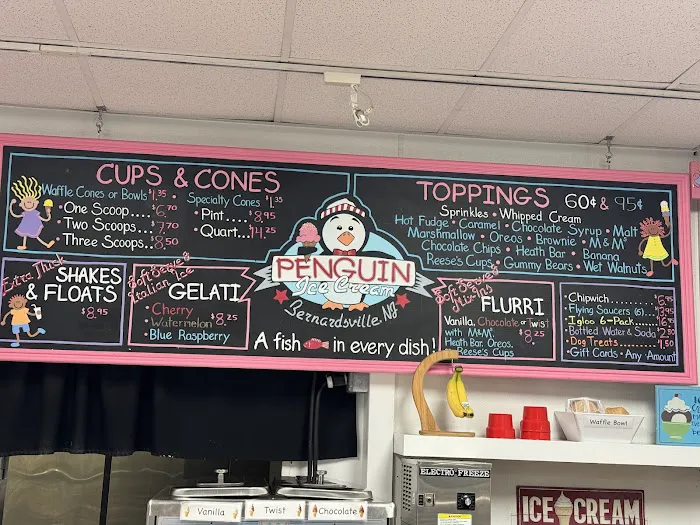 CUPS & CONES
Waffle Cones or Bowls $1.35
Specialty Cones $1.35
One Scoop.... $6.70
Two Scoops... $7.70
Three Scoops. $8.50
Pint..... $8.95
Quart... $14.25
Extra Thick
SHAKES
& FLOATS
$8.95
Soft Serve &
Italian Ice
GELATI
Cherry
Watermelon
Blue Raspberry
$8.25
PENGUIN
Ice Cream
Bernardsville, NJ
A fish in every dish!
TOPPINGS 60¢ & 95¢
Sprinkles • Whipped Cream
Hot Fudge • Caramel • Chocolate Syrup • Malt
Marshmallow • Oreos • Brownie • M&M's
Chocolate Chips • Heath Bar • Banana
Reese's Cups • Gummy Bears • Wet Walnuts
Soft Serve &
Mix-Ins
FLURRI
Vanilla, Chocolate or Twist
with M&M's
Heath Bar, Oreos.
Reese's Cups
$8.25
Chipwich
Flying Saucers (6)
Igloo 6-Pack
Bottled Water & Soda $2.50
Dog Treats $1.50
Gift Cards • Any Amount
Waffle Bowl
ELECTRO FREEZE
Vanilla
Twist
Chocolate
ICE CREAM